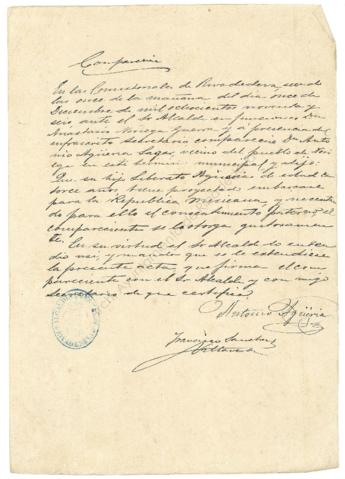 Comparecencia
En las Consistoriales de Rivadedeva, siendo
las once de la mañana del día once de
Diciembre de mil ochocientos noventa y
seis ante el Sr Alcalde en funciones Don
Anastasio Noriega Guerra y a presencia del
infrascrito Secretario comparece Dn Anto
nio Agüeria vecino del pueblo de
en este termino municipal y dijo:
Que su hijo Liberato Agüeria de edad ca
torce años tiene proyectado embarcar
para la Republica Mexicana y necesitan
do para ello el consentimiento paterno el
compareciente se lo otorga gustosamen
te.
En su virtud el Sr Alcalde
mandar que se le extendiese
la presente acta, que firma el com
pareciente con el Sr Alcalde y con migo
Secretario de que certifico.
Antonio Agüeria
Francisco Sanchez